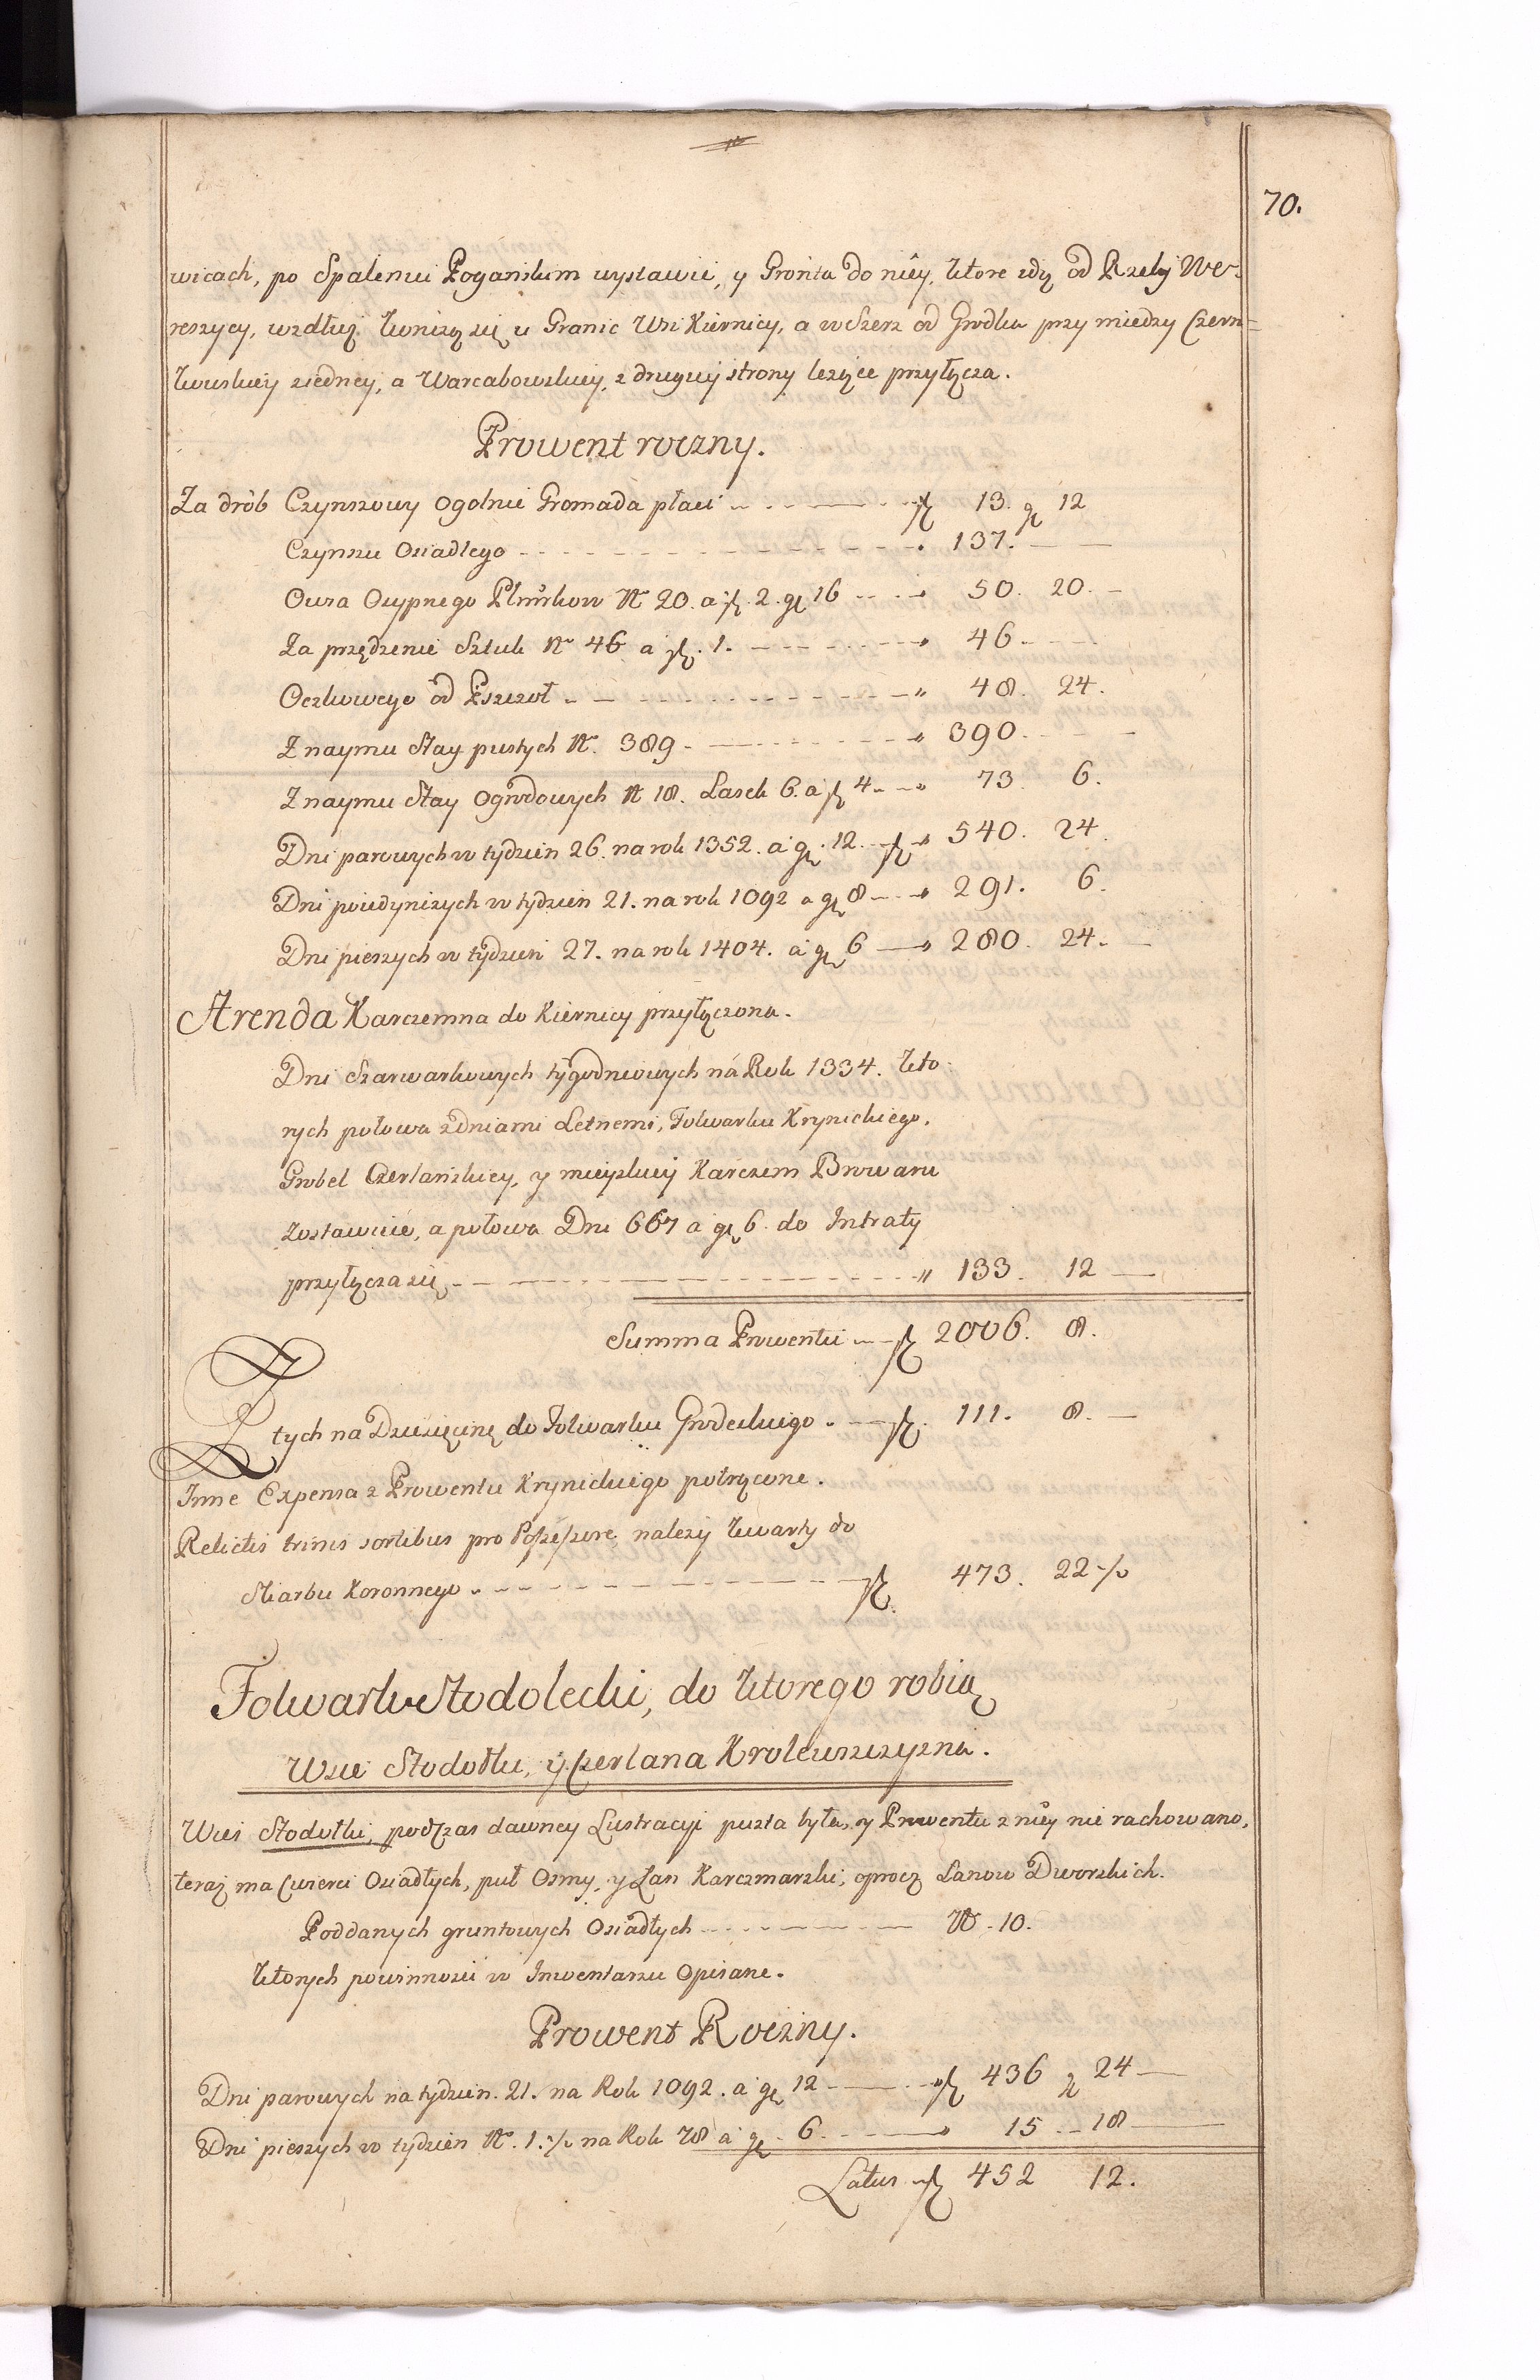 70.
wicach, po Spaleniu Pogańskim wystawić, y Gronta do niey, ktore idą od Rzeky We=
reszycy, wzdłuz kończą się u Granic Wsi Kiernicy, a wszerz od Grodka przy miedzy Czern=
kowskiey ziedney, a Warcabowskiey, z drugiey strony lezące przyłącza.
Prowent roczny.
Za drób Czynszowy ogolnie Gromada płaci - - - fl 13. gr 12
Czynszu Osiadłego - - - 137. -
Owsa Osypnego Półmiarkow N 20. a fl. 2. gr 16 - - - 50. 20. -
Za przędzenie Sztuk Nr 46 a fl. 1. - - - 46 -
Oczkowego od Pszczoł - - - " 48. 24.
Z naymu Stay pustych N. 389 - - - 390. -
Z naymu Stay Ogrodowych N 18. Lasek 6. a fl 4 - - 73. 6.
Dni parowych w tydzien 26. na rok 1352. a gr. 12. - fl 540. 24.
Dni poiedynczych w tydzien 21. na rok 1092 a gr 8 - - - 291. 6.
Dni pieszych w tydzien 27. na rok 1404. a gr 6 - 280. 24. -
Arenda Karczemna do Kiernicy przyłączona.
Dni Szarwarkowych tygodniowych ná Rok 1334. kto=
rych połowa z dniami Letnemi, Folwarku Krynickiego,
Grobel Czerlańskiey, y mieyskiey Karczem Browaru
Zostawuie, a połowa Dni 667 a gr 6. do Intraty
przyłącza się - - - " 133. 12 -
Summa Prowentu - - fl 2006. 8.
Z tych na Dziesięcinę do Folwarku Grodeckiego - - fl. 111. 8. -
Inne Expensa z Prowentu Krynickiego potrącone.
Relictis trinis sortibus pro Possessore, nalezy kwarty do
Skarbu Koronnego - - - fl. 473. 22 ·/.
Folwark Stodolecki, do ktorego robią
Wsie Stodołki, y Czerlana Krolewszczyzna.
Wieś Stodołki, podczas dawney Lustracyi pusta była, y Prowentu z niey nie rachowano,
teraz ma Cwierci Osiadłych, puł Osmy, y Łan Karczmarski, oprocz Łanow Dworskich.
Poddanych gruntowych Osiadłych - - - N. 10.
Ktorych powinności w Inwentarzu Opisane.
Prowent Roczny.
Dni parowych na tydzien. 21. na Rok 1092. a gr 12 - - - fl 436 gr 24 -
Dni pieszych w tydzien N. 1. ·/. na Rok 78 a gr. 6. - - - 15 - 18 -
Latus - fl 452 12.